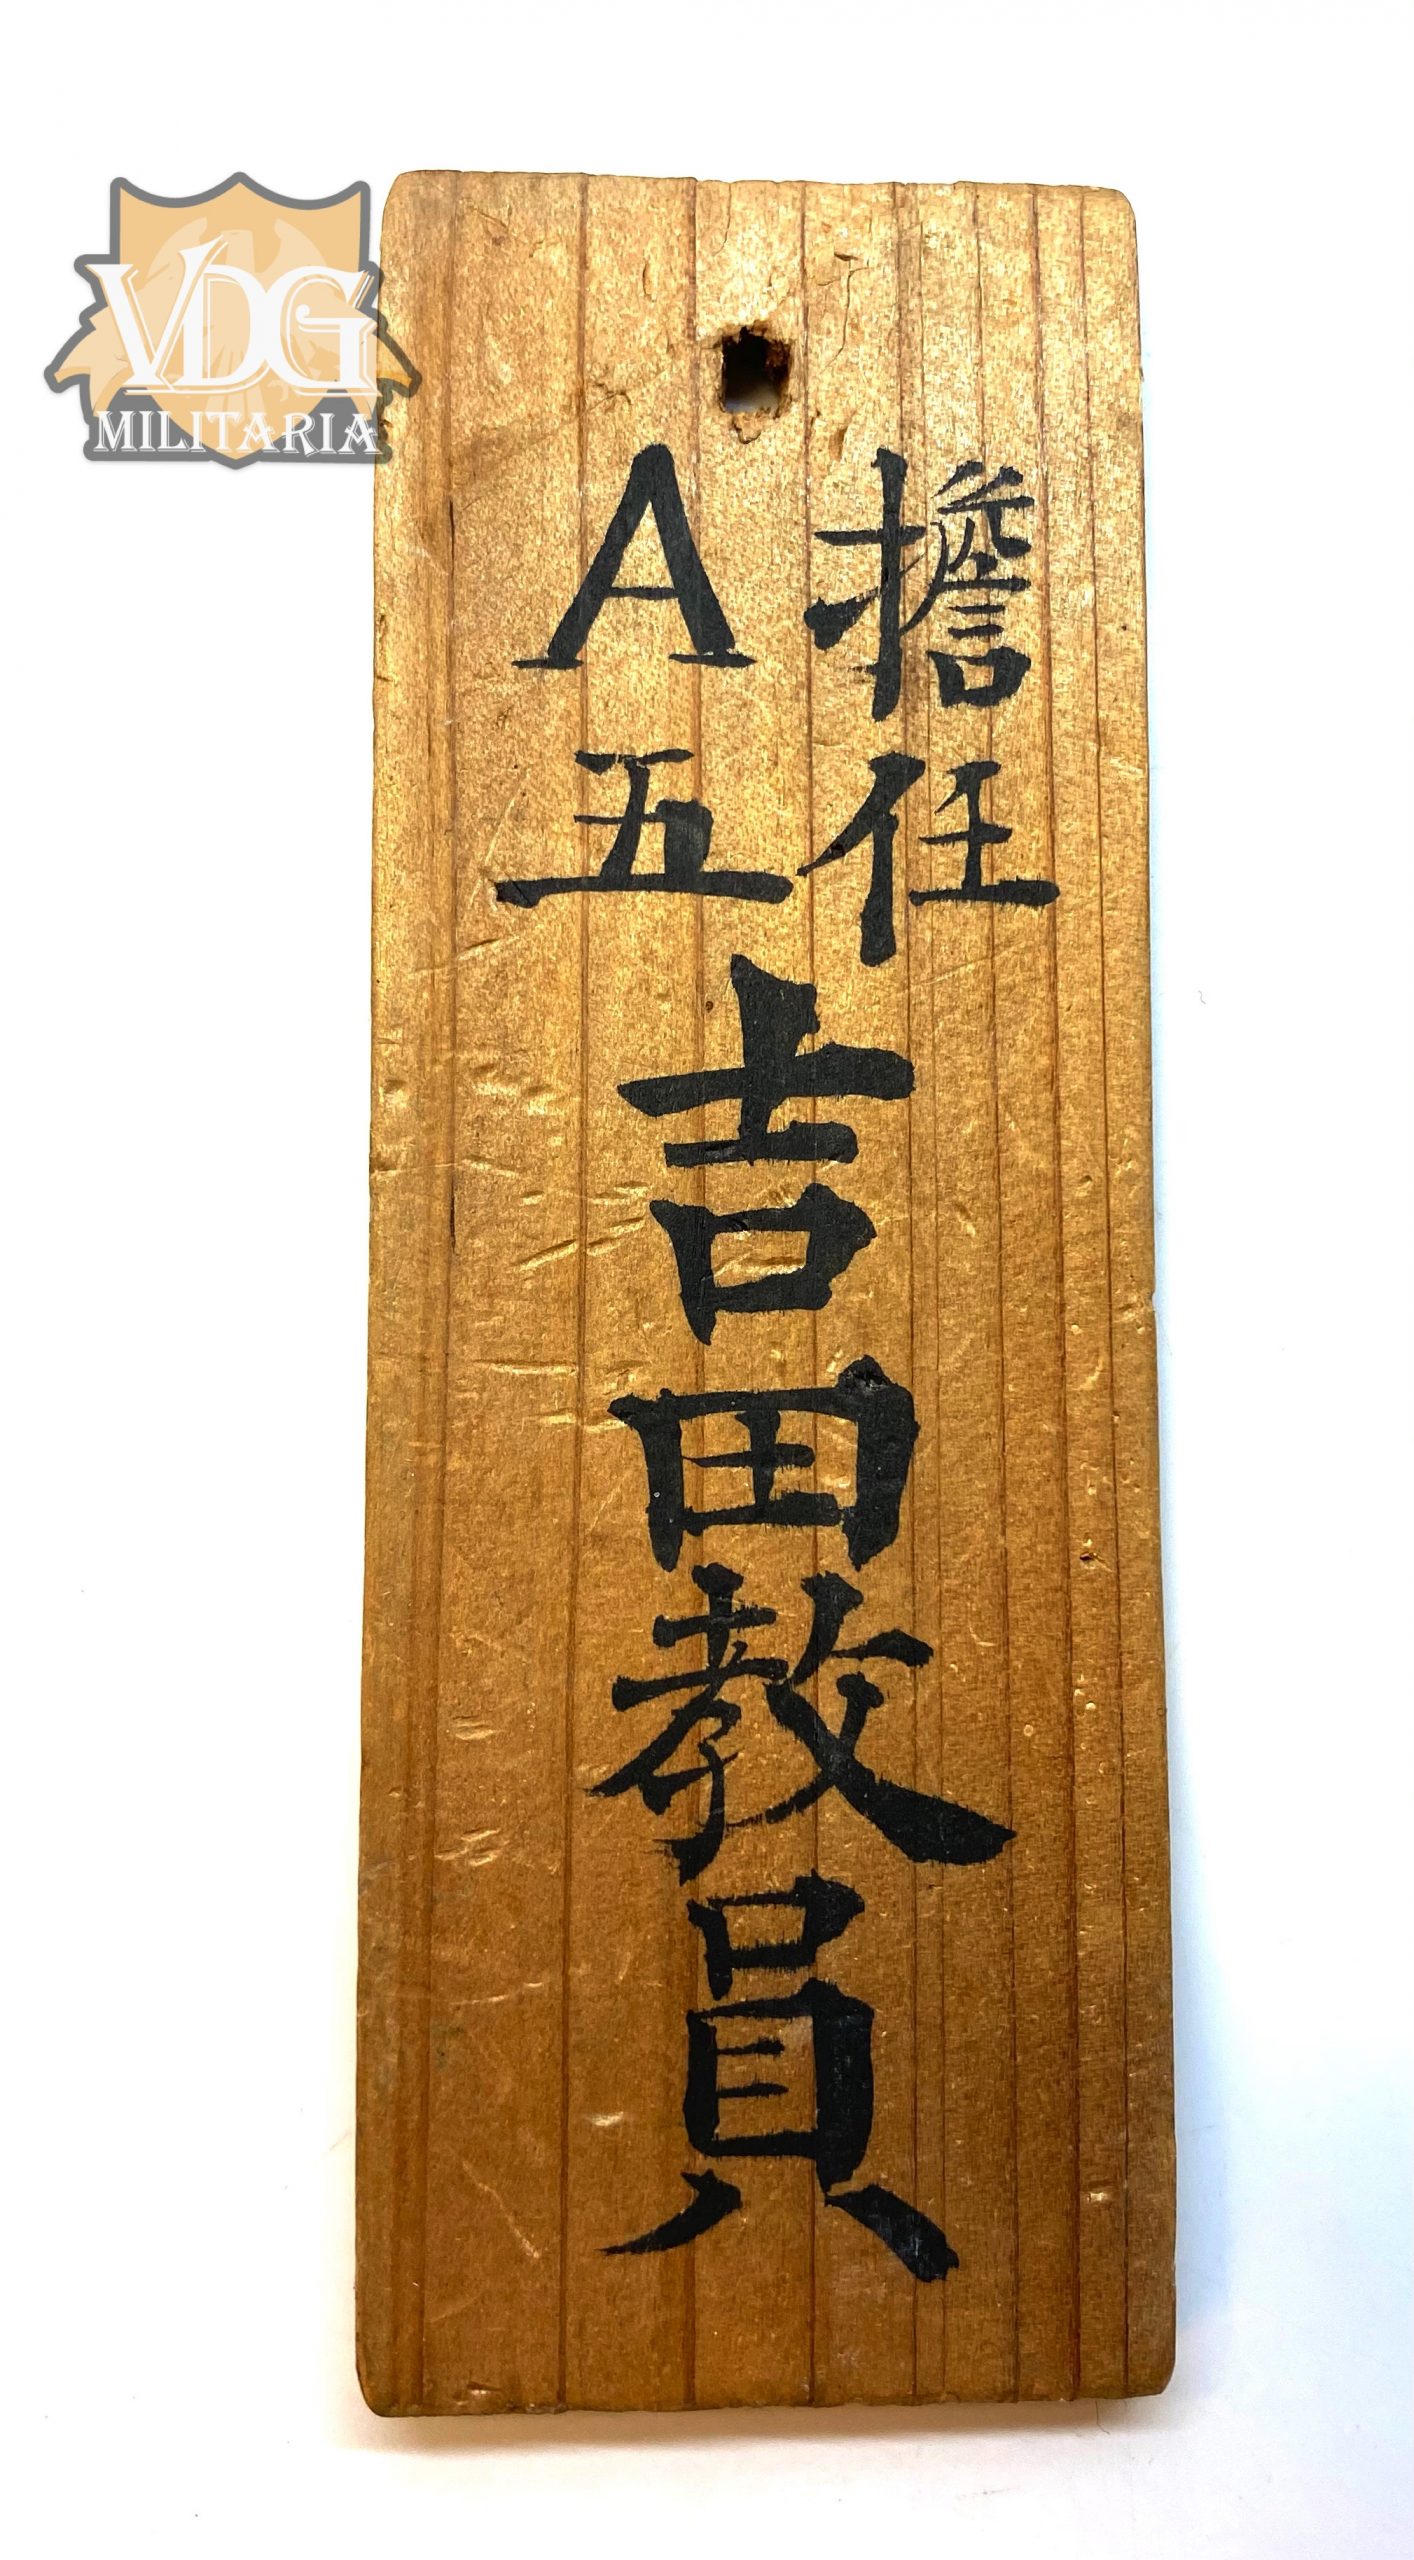 擔任
A五
吉田教員
VDG
MILITARIA